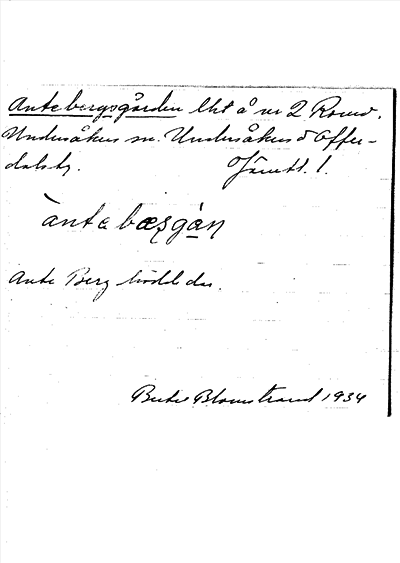 Antebergsgården lht å nr 2 Romo.
Undersåkers sn. Undersåkers o Offer-
dals tg. Jämtl. l.
àntebæʂgàɳ
Ante Berg bodde der.
Bertil Blomstrand 1934